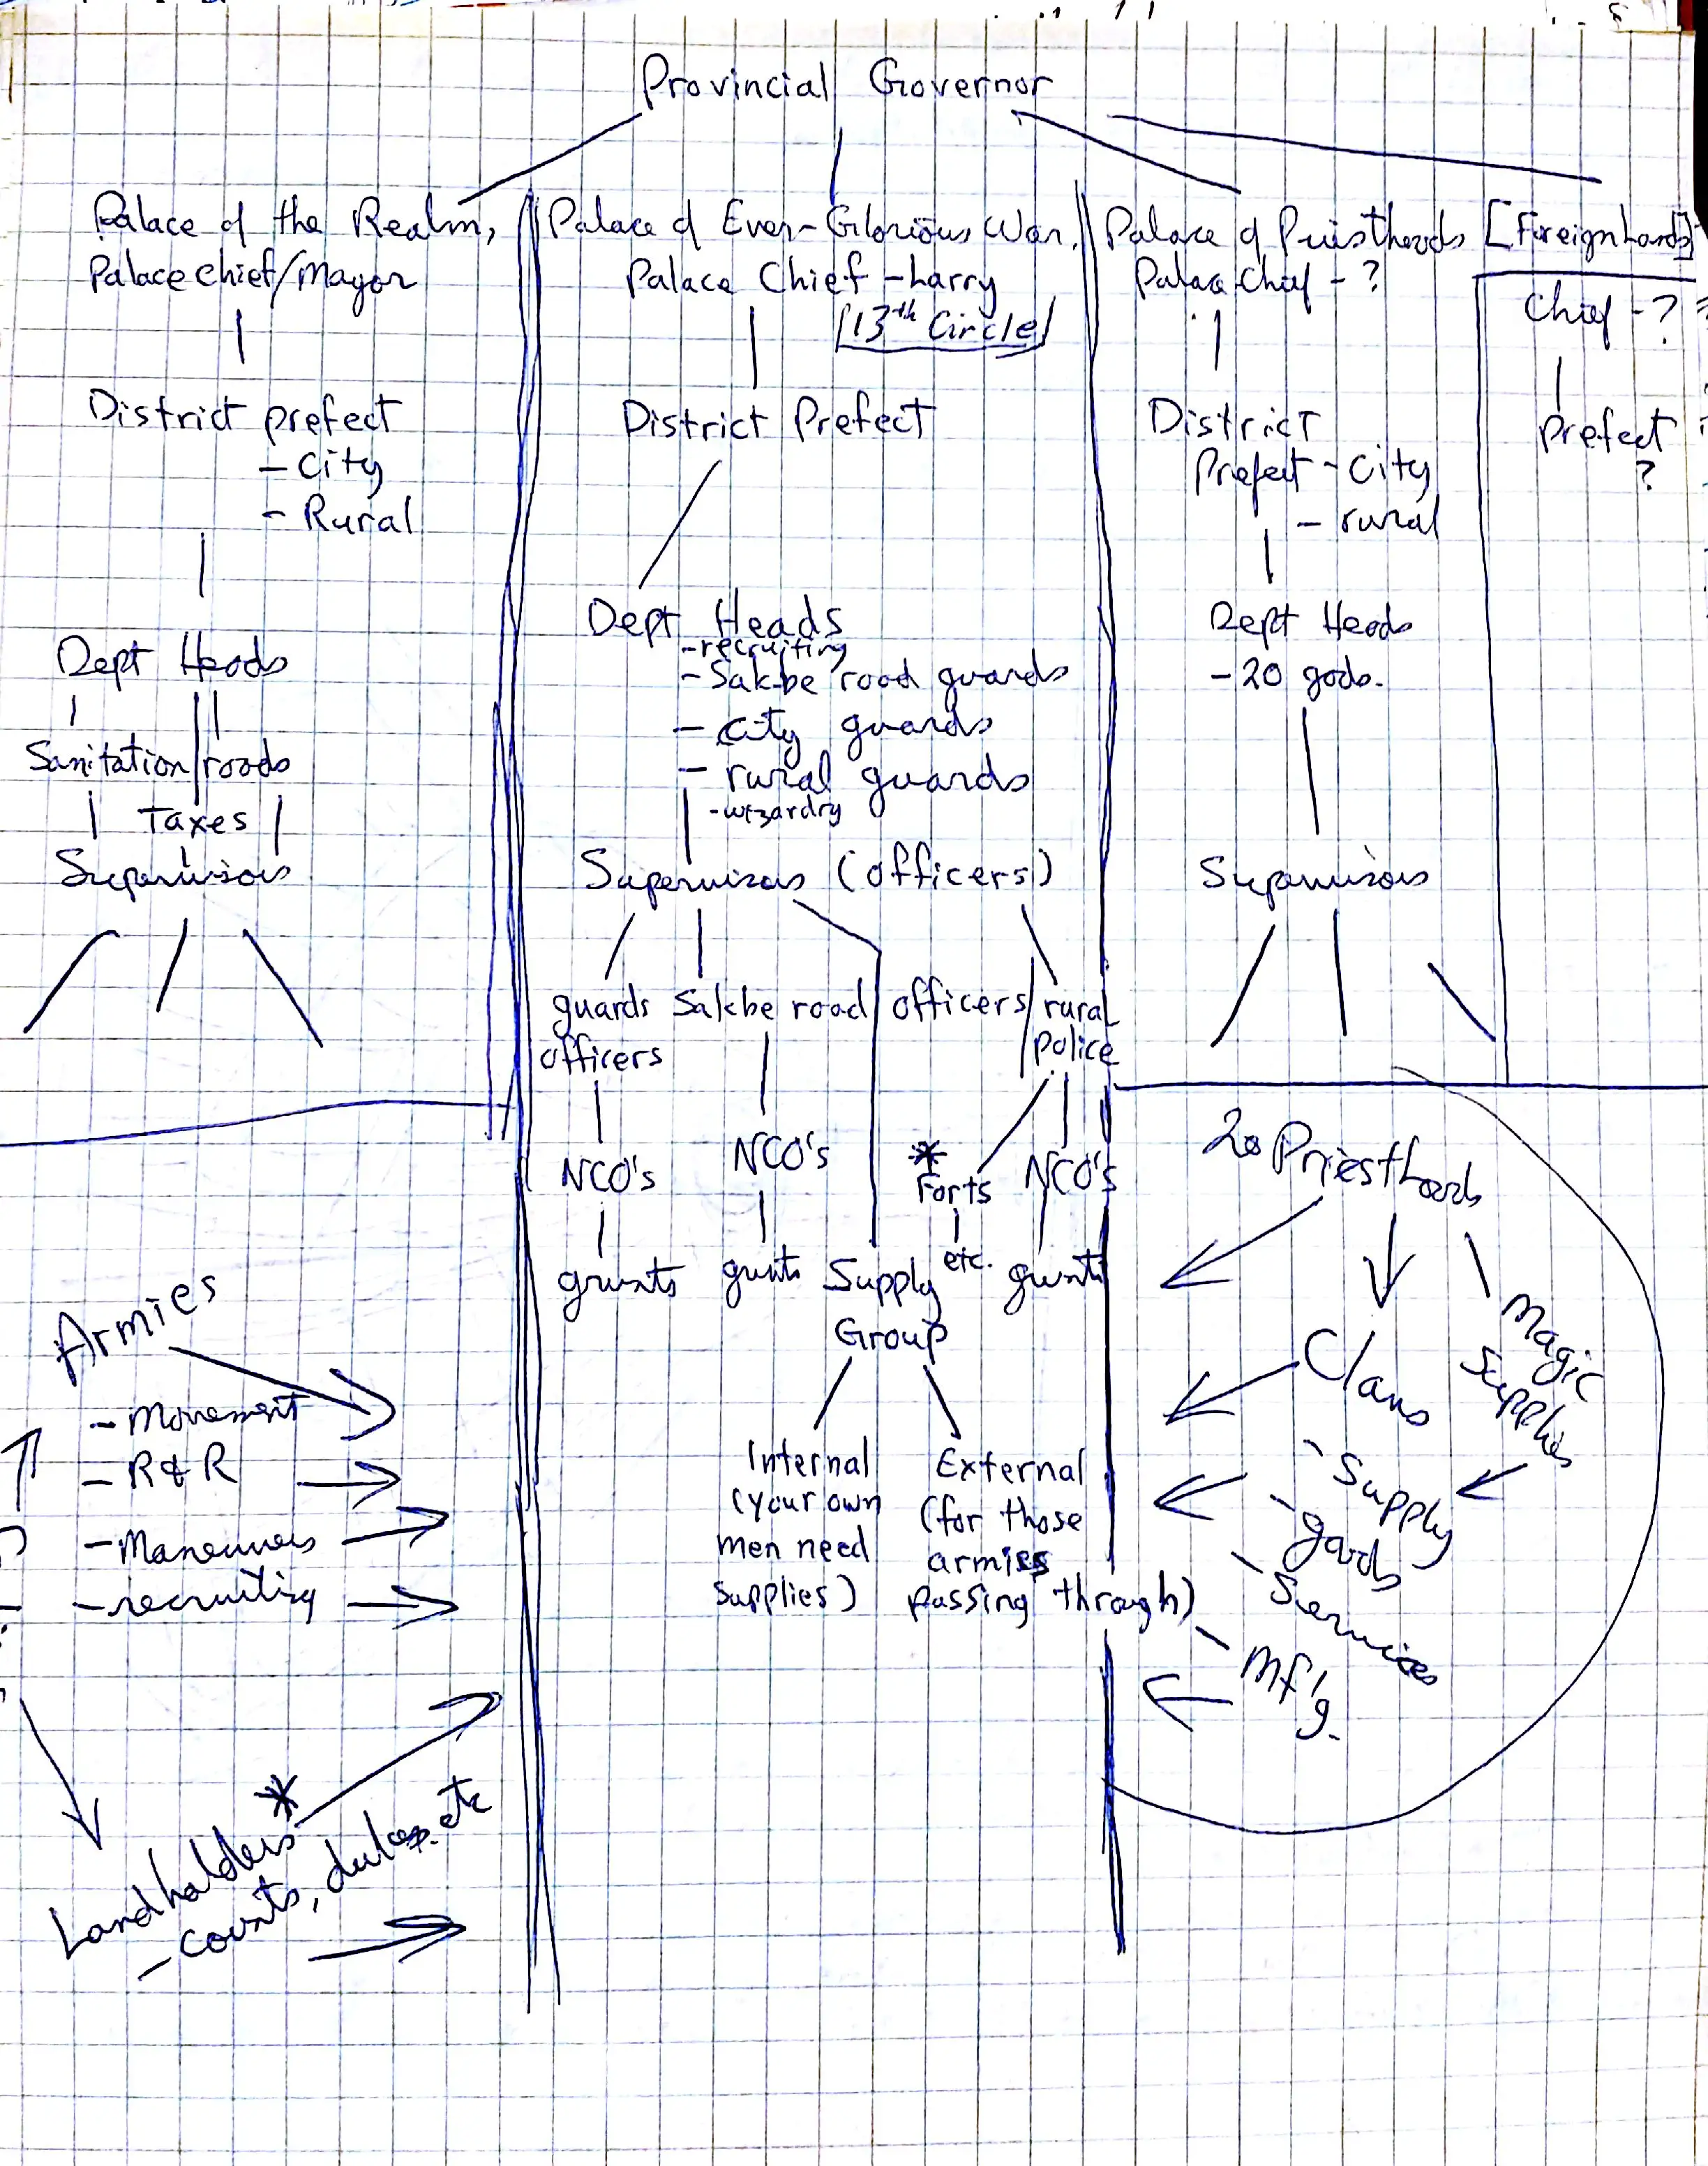 Provincial Governor
Palace of the Realm,
Palace chief/Mayor
District prefect
- City
- Rural
Dept Heads
Sanitation roads
Taxes
Supervisors
Palace of Ever-Glorious War,
Palace Chief - Larry
[13th Circle]
District Prefect
Dept Heads
- recruiting
- Sakbe road guards
- City guards
- rural guards
- wizardry
Supervisors (officers)
guards
officers
Sakbe road officers
rural
police
NCO's
NCO's
*
Forts
NCO's
etc.
grunts
grunts
Supply
Group
grunts
Internal
(your own
men need
supplies)
External
(for those
armies
passing through)
Palace of Priesthoods
Palace Chief - ?
District
Prefect - City
- rural
Dept Heads
- 20 gods.
Supervisors
[Foreign Lands]
Chief - ?
Prefect
?
Armies
- Movement
- R & R
- Maneuvers
- recruiting
*
Landholders
- counts, dukes, etc
20 Priesthoods
Magic
Supplies
Clans
- Supply
- goods
- Services
- Mf'g.